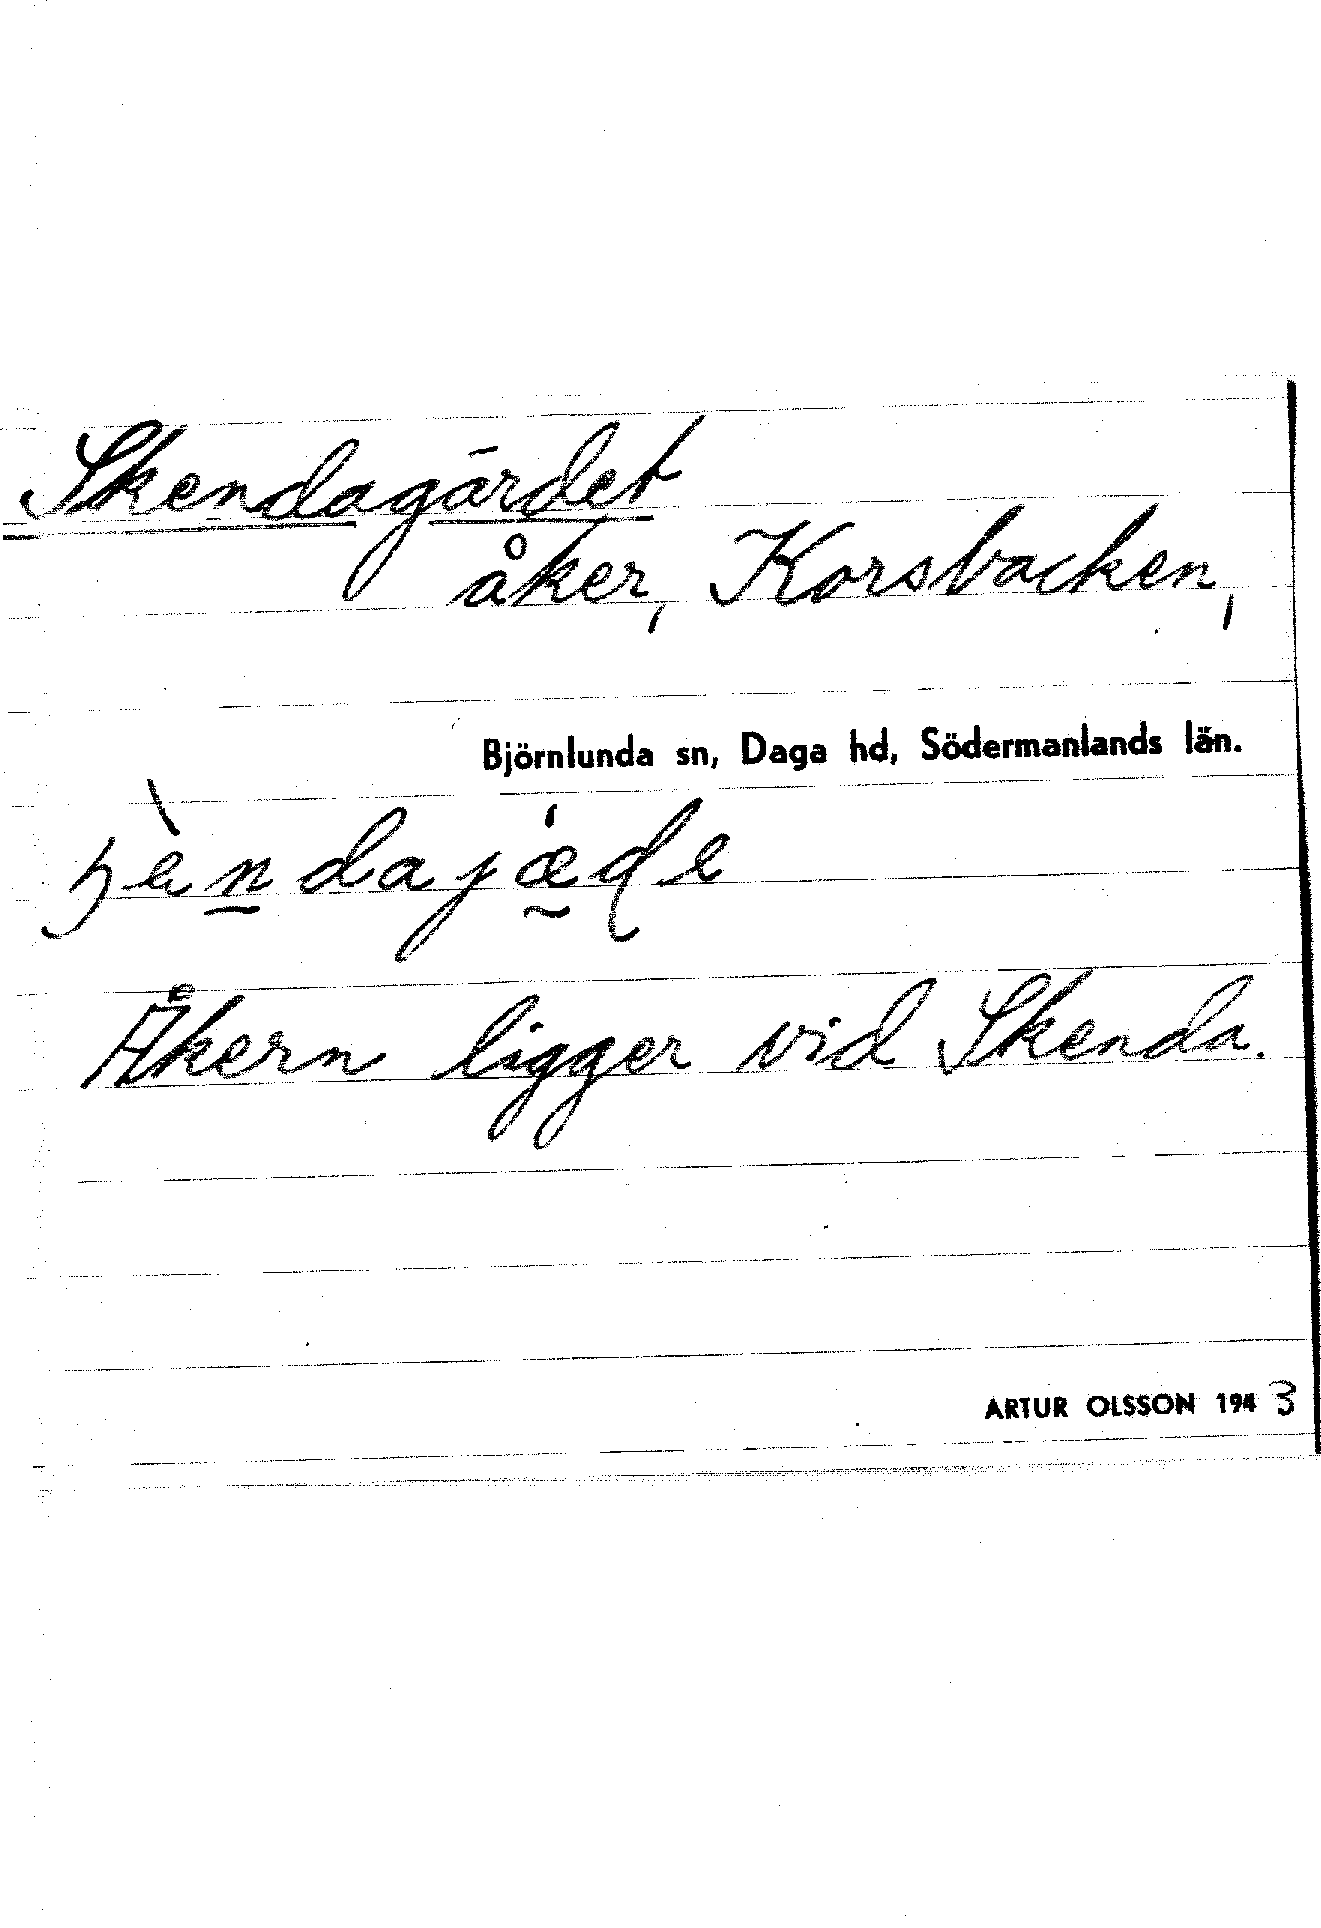 Skendagärdet
åker, Korsbacken,
Björnlunda sn, Daga hd, Södermanlands län.
Åkern ligger vid Skenda.
ARTUR OLSSON 1943